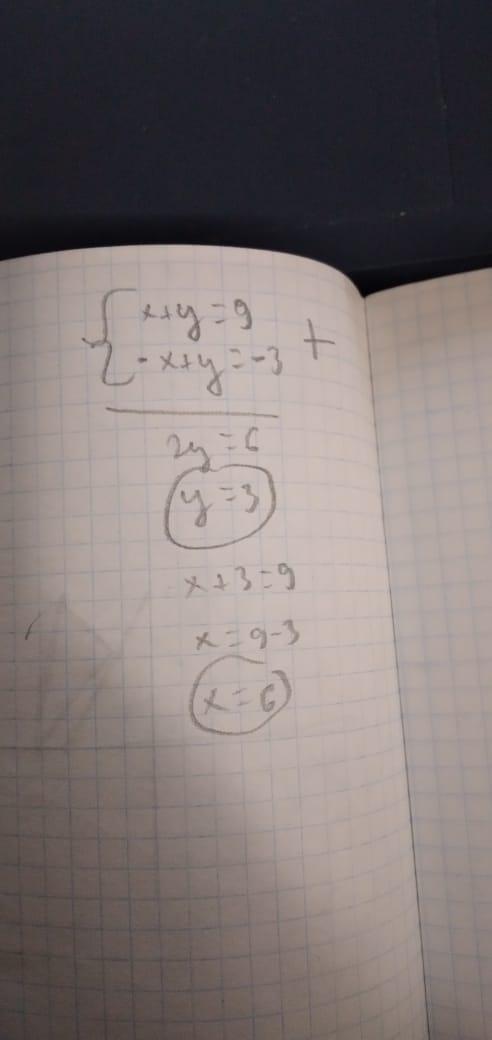 x+y=9
-x+y=-3 +
2y=6
y=3
x+3=9
x=9-3
x=6